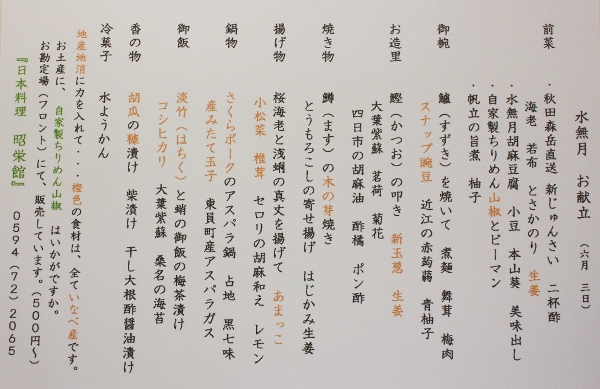 水無月 お献立 (六月 三日)
前菜 ・秋田森岳直送 新じゅんさい 二杯酢
海老 若布 とさかのり 生姜
・水無月胡麻豆腐 小豆 本山葵 美味出し
・自家製ちりめん山椒とピーマン
・帆立の旨煮 柚子
御椀 鱸(すずき)を焼いて 煮麺 舞茸 梅肉
スナップ豌豆 近江の赤蒟蒻 青柚子
お造里 鰹(かつお)の叩き 新玉葱 生姜
大葉紫蘇 茗荷 菊花
四日市の胡麻油 酢橘 ポン酢
焼き物 鱒(ます)の木の芽焼き
とうもろこしの寄せ揚げ はじかみ生姜
揚げ物 桜海老と浅蜊の真丈を揚げて あまっこ
小松菜 椎茸 セロリの胡麻和え レモン
鍋物 さくらポークのアスパラ鍋 占地 黒七味
産みたて玉子 東員町産アスパラガス
御飯 淡竹(はちく)と蛸の御飯の梅茶漬け
コシヒカリ 大葉紫蘇 桑名の海苔
香の物 胡瓜の糠漬け 柴漬け 干し大根酢醤油漬け
冷菓子 水ようかん
地産地消に力を入れて・・・橙色の食材は、全ていなべ産です。
お土産に、 自家製ちりめん山椒 はいかがですか。
お勘定場(フロント)にて、販売しています。(500円~)
『日本料理 昭栄館』 0594(72)2065